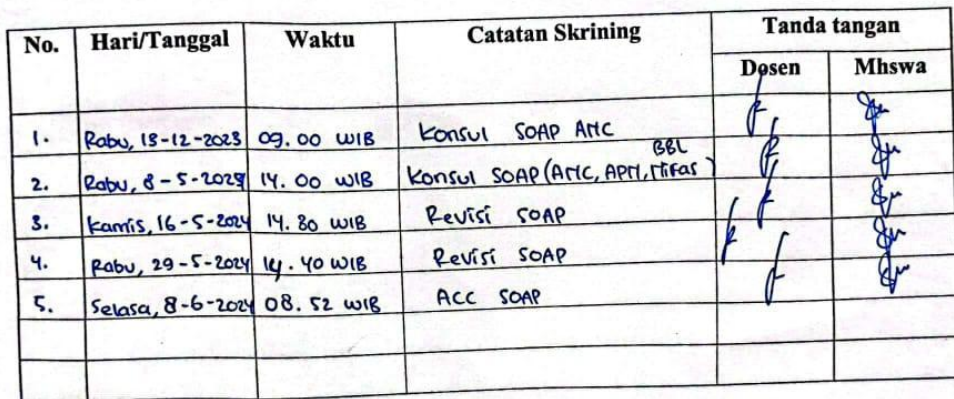 No. Hari/Tanggal Waktu Catatan Skrining Tanda tangan
Dosen Mhswa
1. Rabu, 13-12-2023 09.00 WIB Konsul SOAP ANC
BBL
2. Rabu, 8-5-2024 14.00 WIB Konsul SOAP (ANC, APN, Nifas)
3. Kamis, 16-5-2024 14.30 WIB Revisi SOAP
4. Rabu, 29-5-2024 14.40 WIB Revisi SOAP
5. Selasa, 8-6-2024 08.52 WIB ACC SOAP